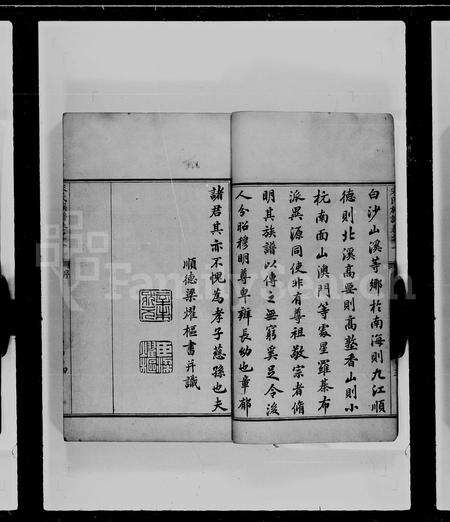 白沙山溪等鄉於南海則九江順
德則北溪高要則高整香山則小
杭南面山澳門等處星羅棊布
派異源同使非有尊祖敬宗者脩
明其族譜以傳之無窮奚足令後
人分昭穆明尊卑辨長幼也章郁
諸君其亦不愧為孝子慈孫也夫
順德梁燿樞書并識
FamilySearch